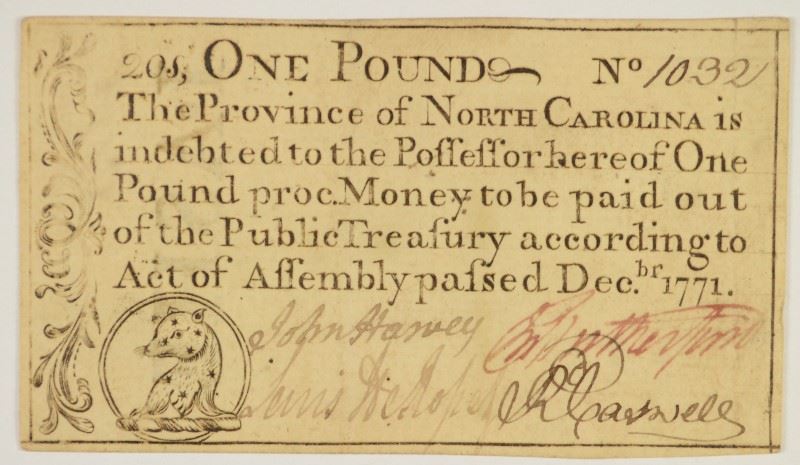 20s, ONE POUND No 1032
The Province of NORTH CAROLINA is
indebted to the Poſſeſſor hereof One
Pound proc. Money to be paid out
of the Public Treaſury according to
Act of Aſſembly paſſed Dec.br 1771.
John Harvey Rutherfurd
Lewis DeRosset R Caswell